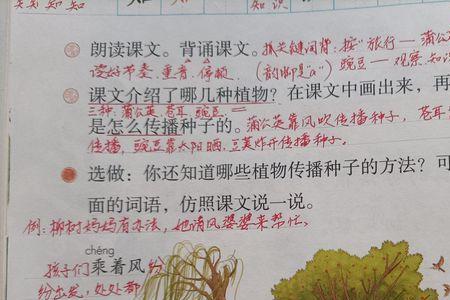 知识
朗读课文。背诵课文。抓关键词背，按"旅行—蒲公
读好节奏、重音、停顿。（韵脚是"a"）豌豆—观察.知识
课文介绍了哪几种植物？在课文中画出来，再
三种.蒲公英.苍耳.豌豆
是怎么传播种子的。蒲公英靠风吹传播种子，苍耳
传播，豌豆靠太阳晒，豆荚炸开传播种子。
选做：你还知道哪些植物传播种子的方法？可
面的词语，仿照课文说一说。
例：柳树妈妈有办法，她请风婆婆来帮忙。
chéng
孩子们乘着风纷
纷出发，处处都